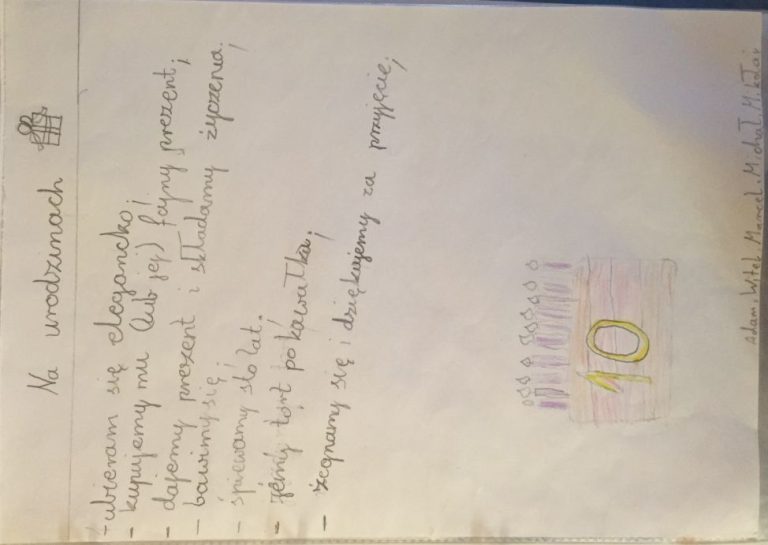 Na urodzinach
- ubieram się elegancko;
- kupujemy mu (lub jej) fajny prezent;
- dajemy prezent i składamy życzenia;
- bawimy się;
- śpiewamy sto lat.
- jemy tort po kawałku;
- żegnamy się i dziękujemy za przyjęcie;
10
Adam, Witek, Marcel, Michał, Mikołaj